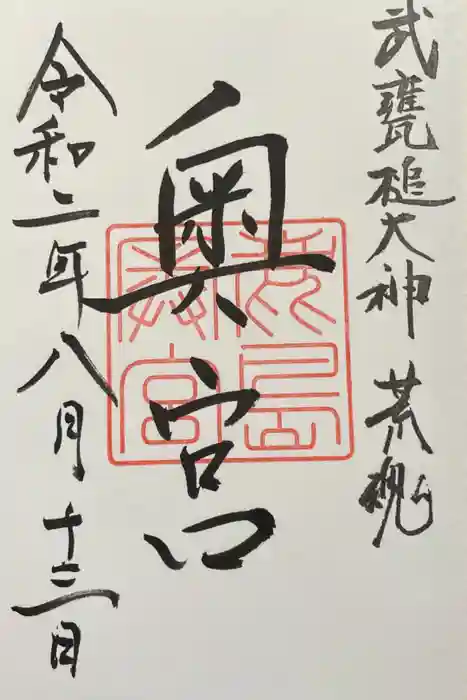 武甕槌大神 荒魂
奥宮
鹿島奥宮
令和二年八月十三日